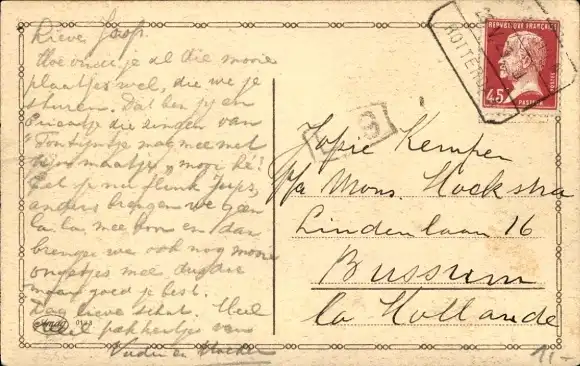 Lieve Joop.
Hoe vind je al die mooie
plaatjes wel, die we je
sturen. Dat ben jij en
die zingen van
mag mee met
maatje, mooi hè!
Eet je nu flink Jops,
anders brengen we geen
la la mee hoor en dan
brengen we ook nog mooie
mee, dus doe
maar goed je best.
Dag lieve schat. Veel
pakkertjes van
Vader en Moeder
REPUBLIQUE FRANÇAISE
45
POSTES
PASTEUR
ROTTER
Jopie Kemper
p/a Mons. Hoekstra
Lindenlaan 16
Bussum
la Hollande
11-